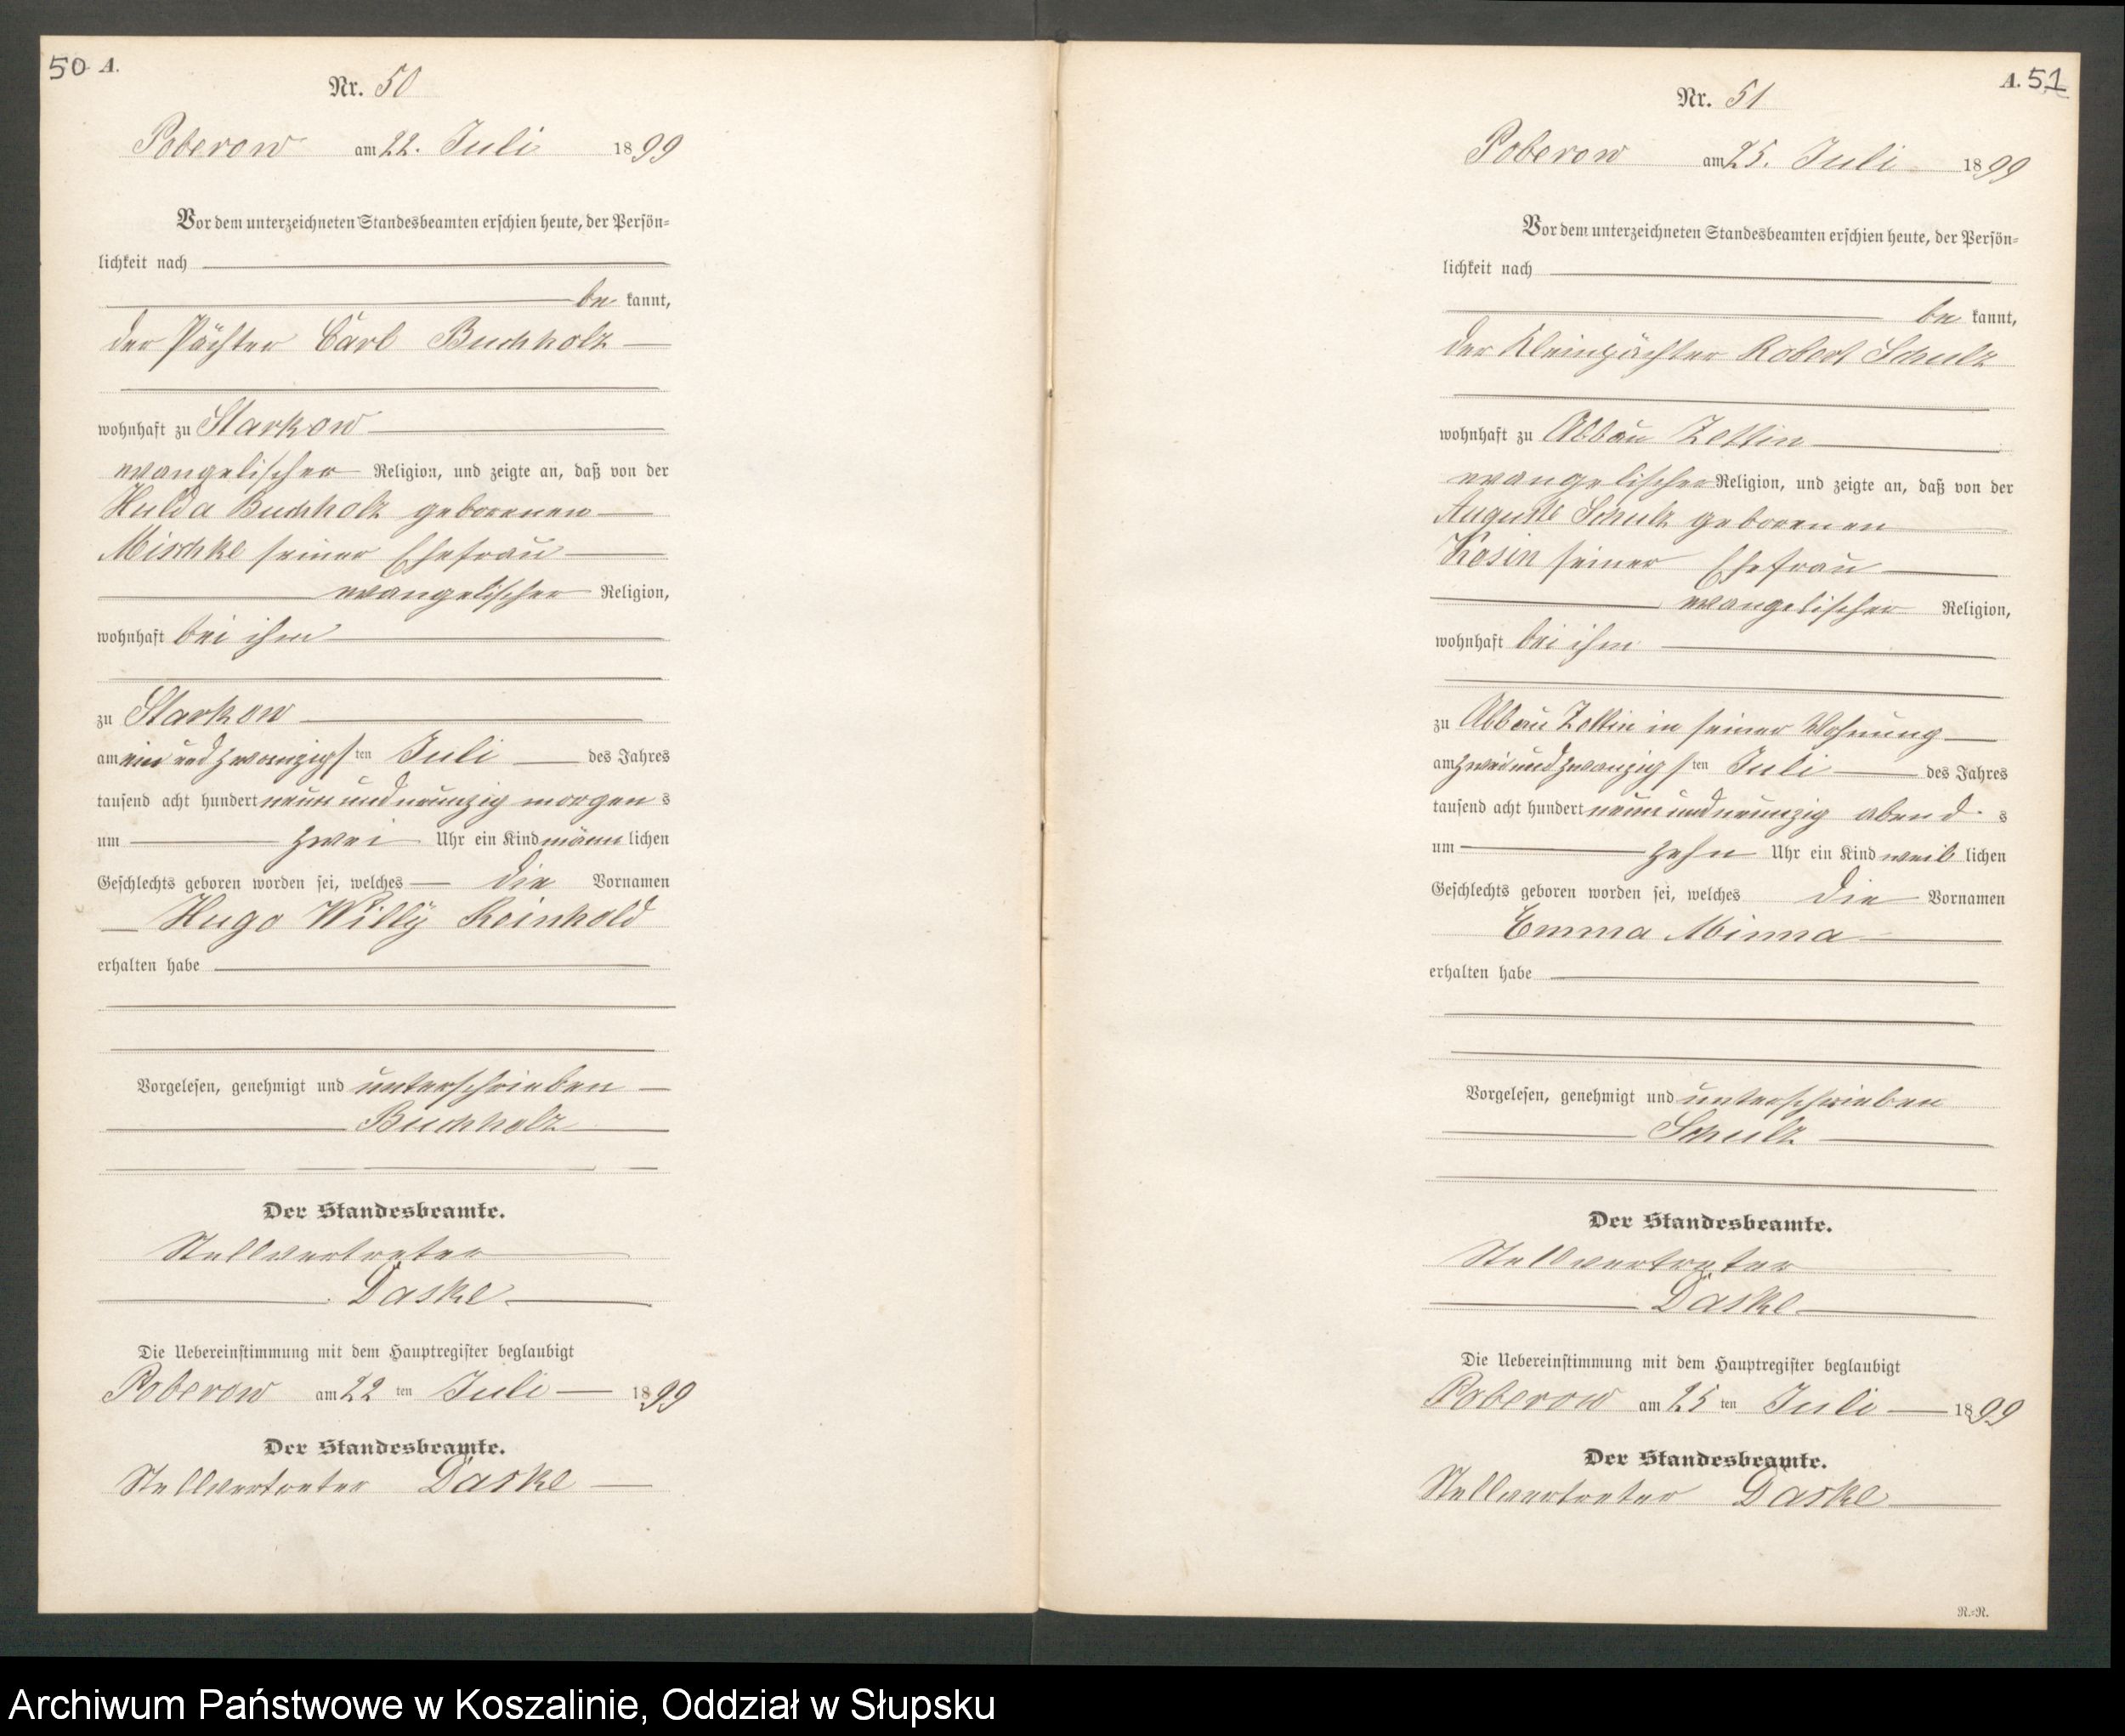 50 A.
Nr. 50
Poberow am 22. Juli 1899
Vor dem unterzeichneten Standesbeamten erschien heute, der Persön-
lichkeit nach
be kannt,
der Pächter Carl Buchholz
wohnhaft zu Starkow
evangelischer Religion, und zeigte an, daß von der
Hulda Buchholz geborenen
Mischke seiner Ehefrau
evangelischer Religion,
wohnhaft bei ihm
zu Starkow
am ein und zwanzigsten Juli des Jahres
tausend acht hundert neun und neunzig morgens
um zwei Uhr ein Kind männlichen
Geschlechts geboren worden sei, welches die Vornamen
Hugo Willy Reinhold
erhalten habe
Vorgelesen, genehmigt und unterschrieben
Buchholz
Der Standesbeamte.
Stellvertreter
Daske
Die Uebereinstimmung mit dem Hauptregister beglaubigt
Poberow am 22 ten Juli 1899
Der Standesbeamte.
Stellvertreter Daske
A. 51
Nr. 51
Poberow am 25. Juli 1899
Vor dem unterzeichneten Standesbeamten erschien heute, der Persön-
lichkeit nach
be kannt,
der Kleinpächter Robert Schulz
wohnhaft zu Abbau Zettin
evangelischer Religion, und zeigte an, daß von der
Auguste Schulz geborenen
Kosin seiner Ehefrau
evangelischer Religion,
wohnhaft bei ihm
zu Abbau Zettin in seiner Wohnung
am zwei und zwanzigsten Juli des Jahres
tausend acht hundert neun und neunzig abends
um zehn Uhr ein Kind weiblichen
Geschlechts geboren worden sei, welches die Vornamen
Emma Minna
erhalten habe
Vorgelesen, genehmigt und unterschrieben
Schulz
Der Standesbeamte.
Stellvertreter
Daske
Die Uebereinstimmung mit dem Hauptregister beglaubigt
Poberow am 25 ten Juli 1899
Der Standesbeamte.
Stellvertreter Daske
R.=R.
Archiwum Państwowe w Koszalinie, Oddział w Słupsku